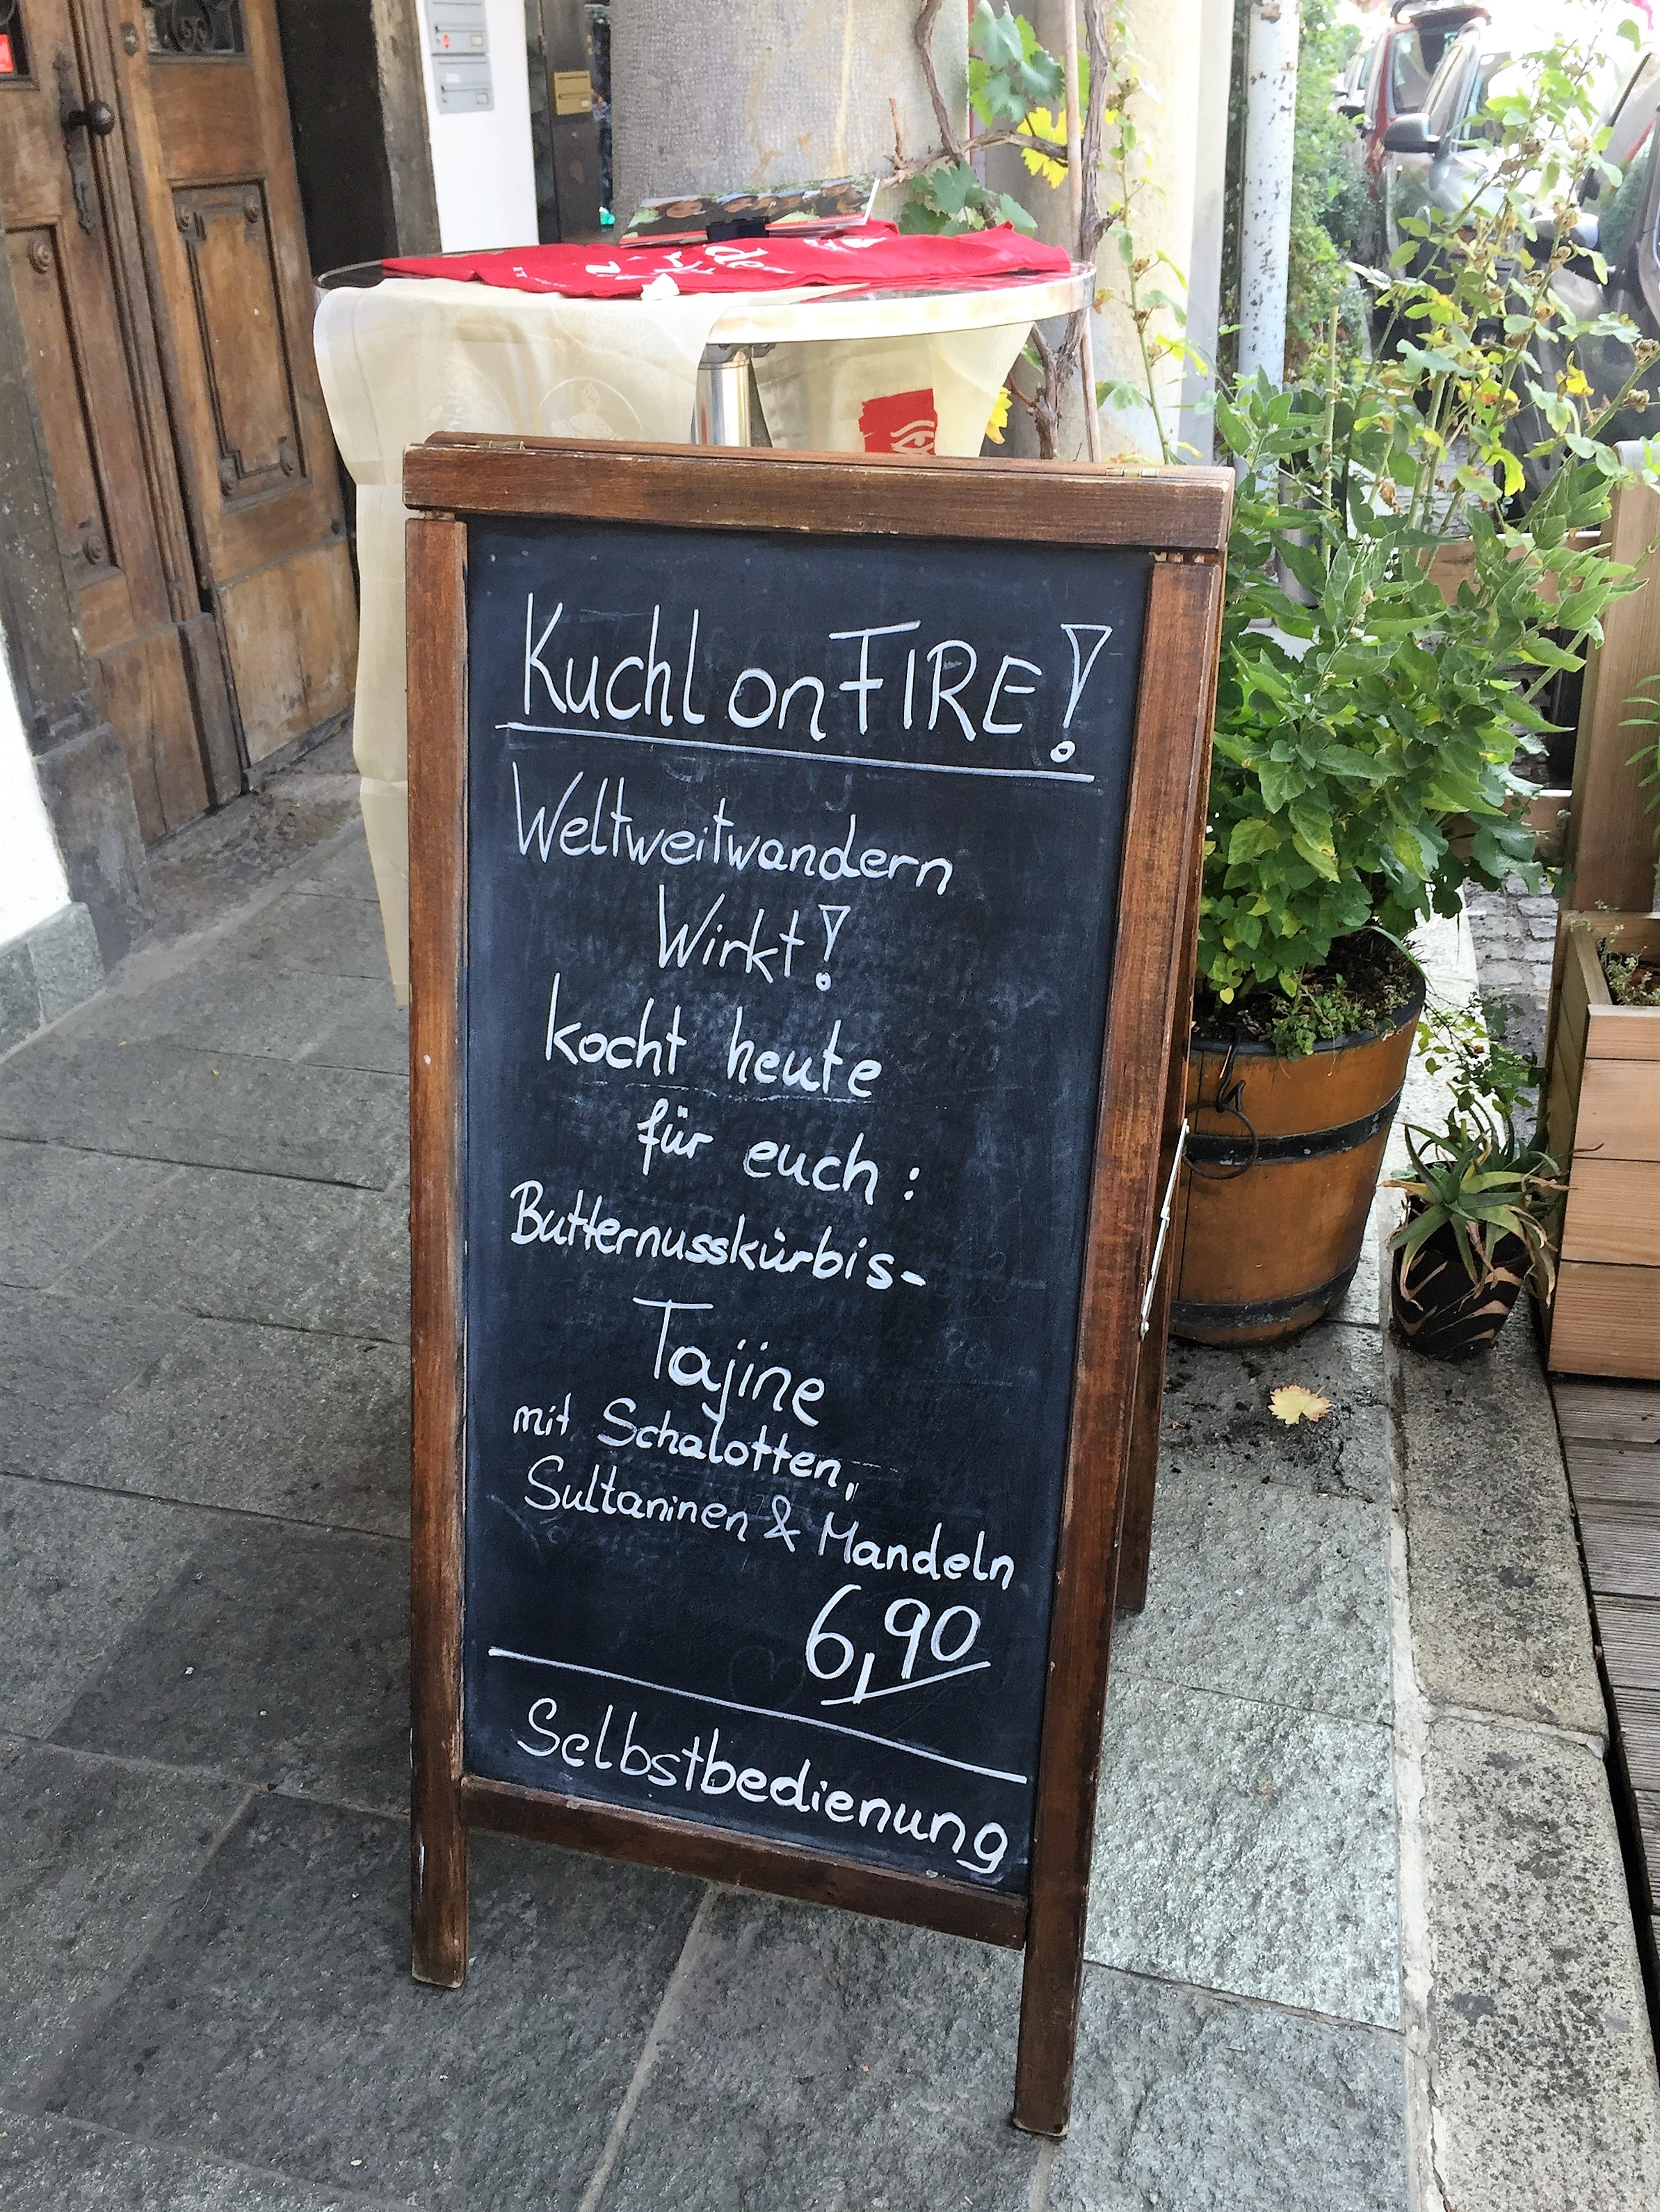 Kuchl on FIRE!
Weltweitwandern
Wirkt!
kocht heute
für euch:
Butternusskürbis-
Tajine
mit Schalotten,
Sultaninen & Mandeln
6,90
Selbstbedienung